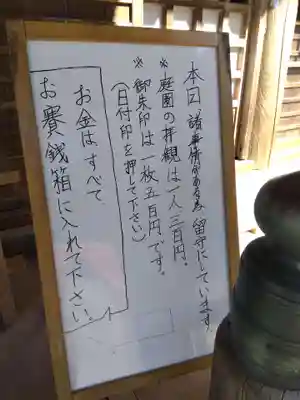 本日、諸事情がある為留守にしています
※庭園の拝観は一人三百円。
※御朱印は一枚五百円です。
(日付印を押して下さい)
お金はすべて
お賽銭箱に入れて下さい。